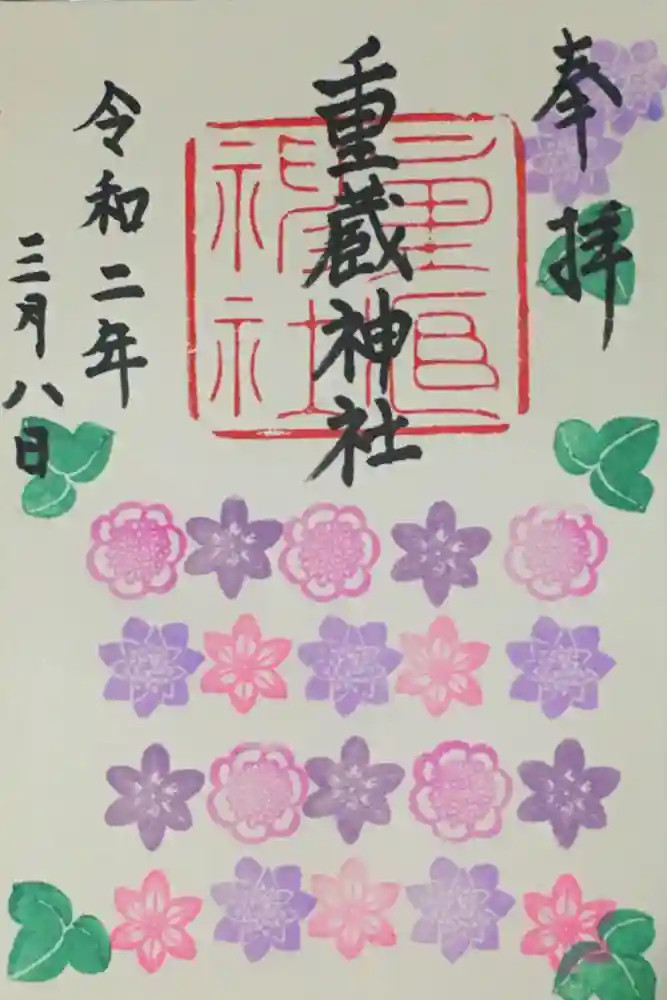 奉拝
重蔵神社
重蔵神社
令和二年
三月八日